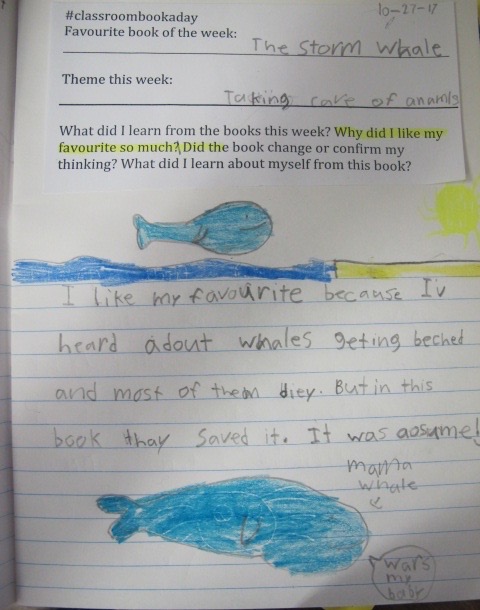 10-27-17
#classroombookaday
Favourite book of the week: The Storm Whale
Theme this week:
Taking care of anamls
What did I learn from the books this week? Why did I like my
favourite so much? Did the book change or confirm my
thinking? What did I learn about myself from this book?
I like my favourite because Iv
heard adout whales geting beched
and most of them diey. But in this
book thay saved it. It was aosume!
mama
whale
wars
my
baby